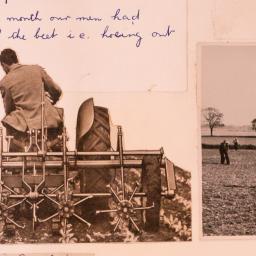 month our men had
the beet i.e. hoeing out